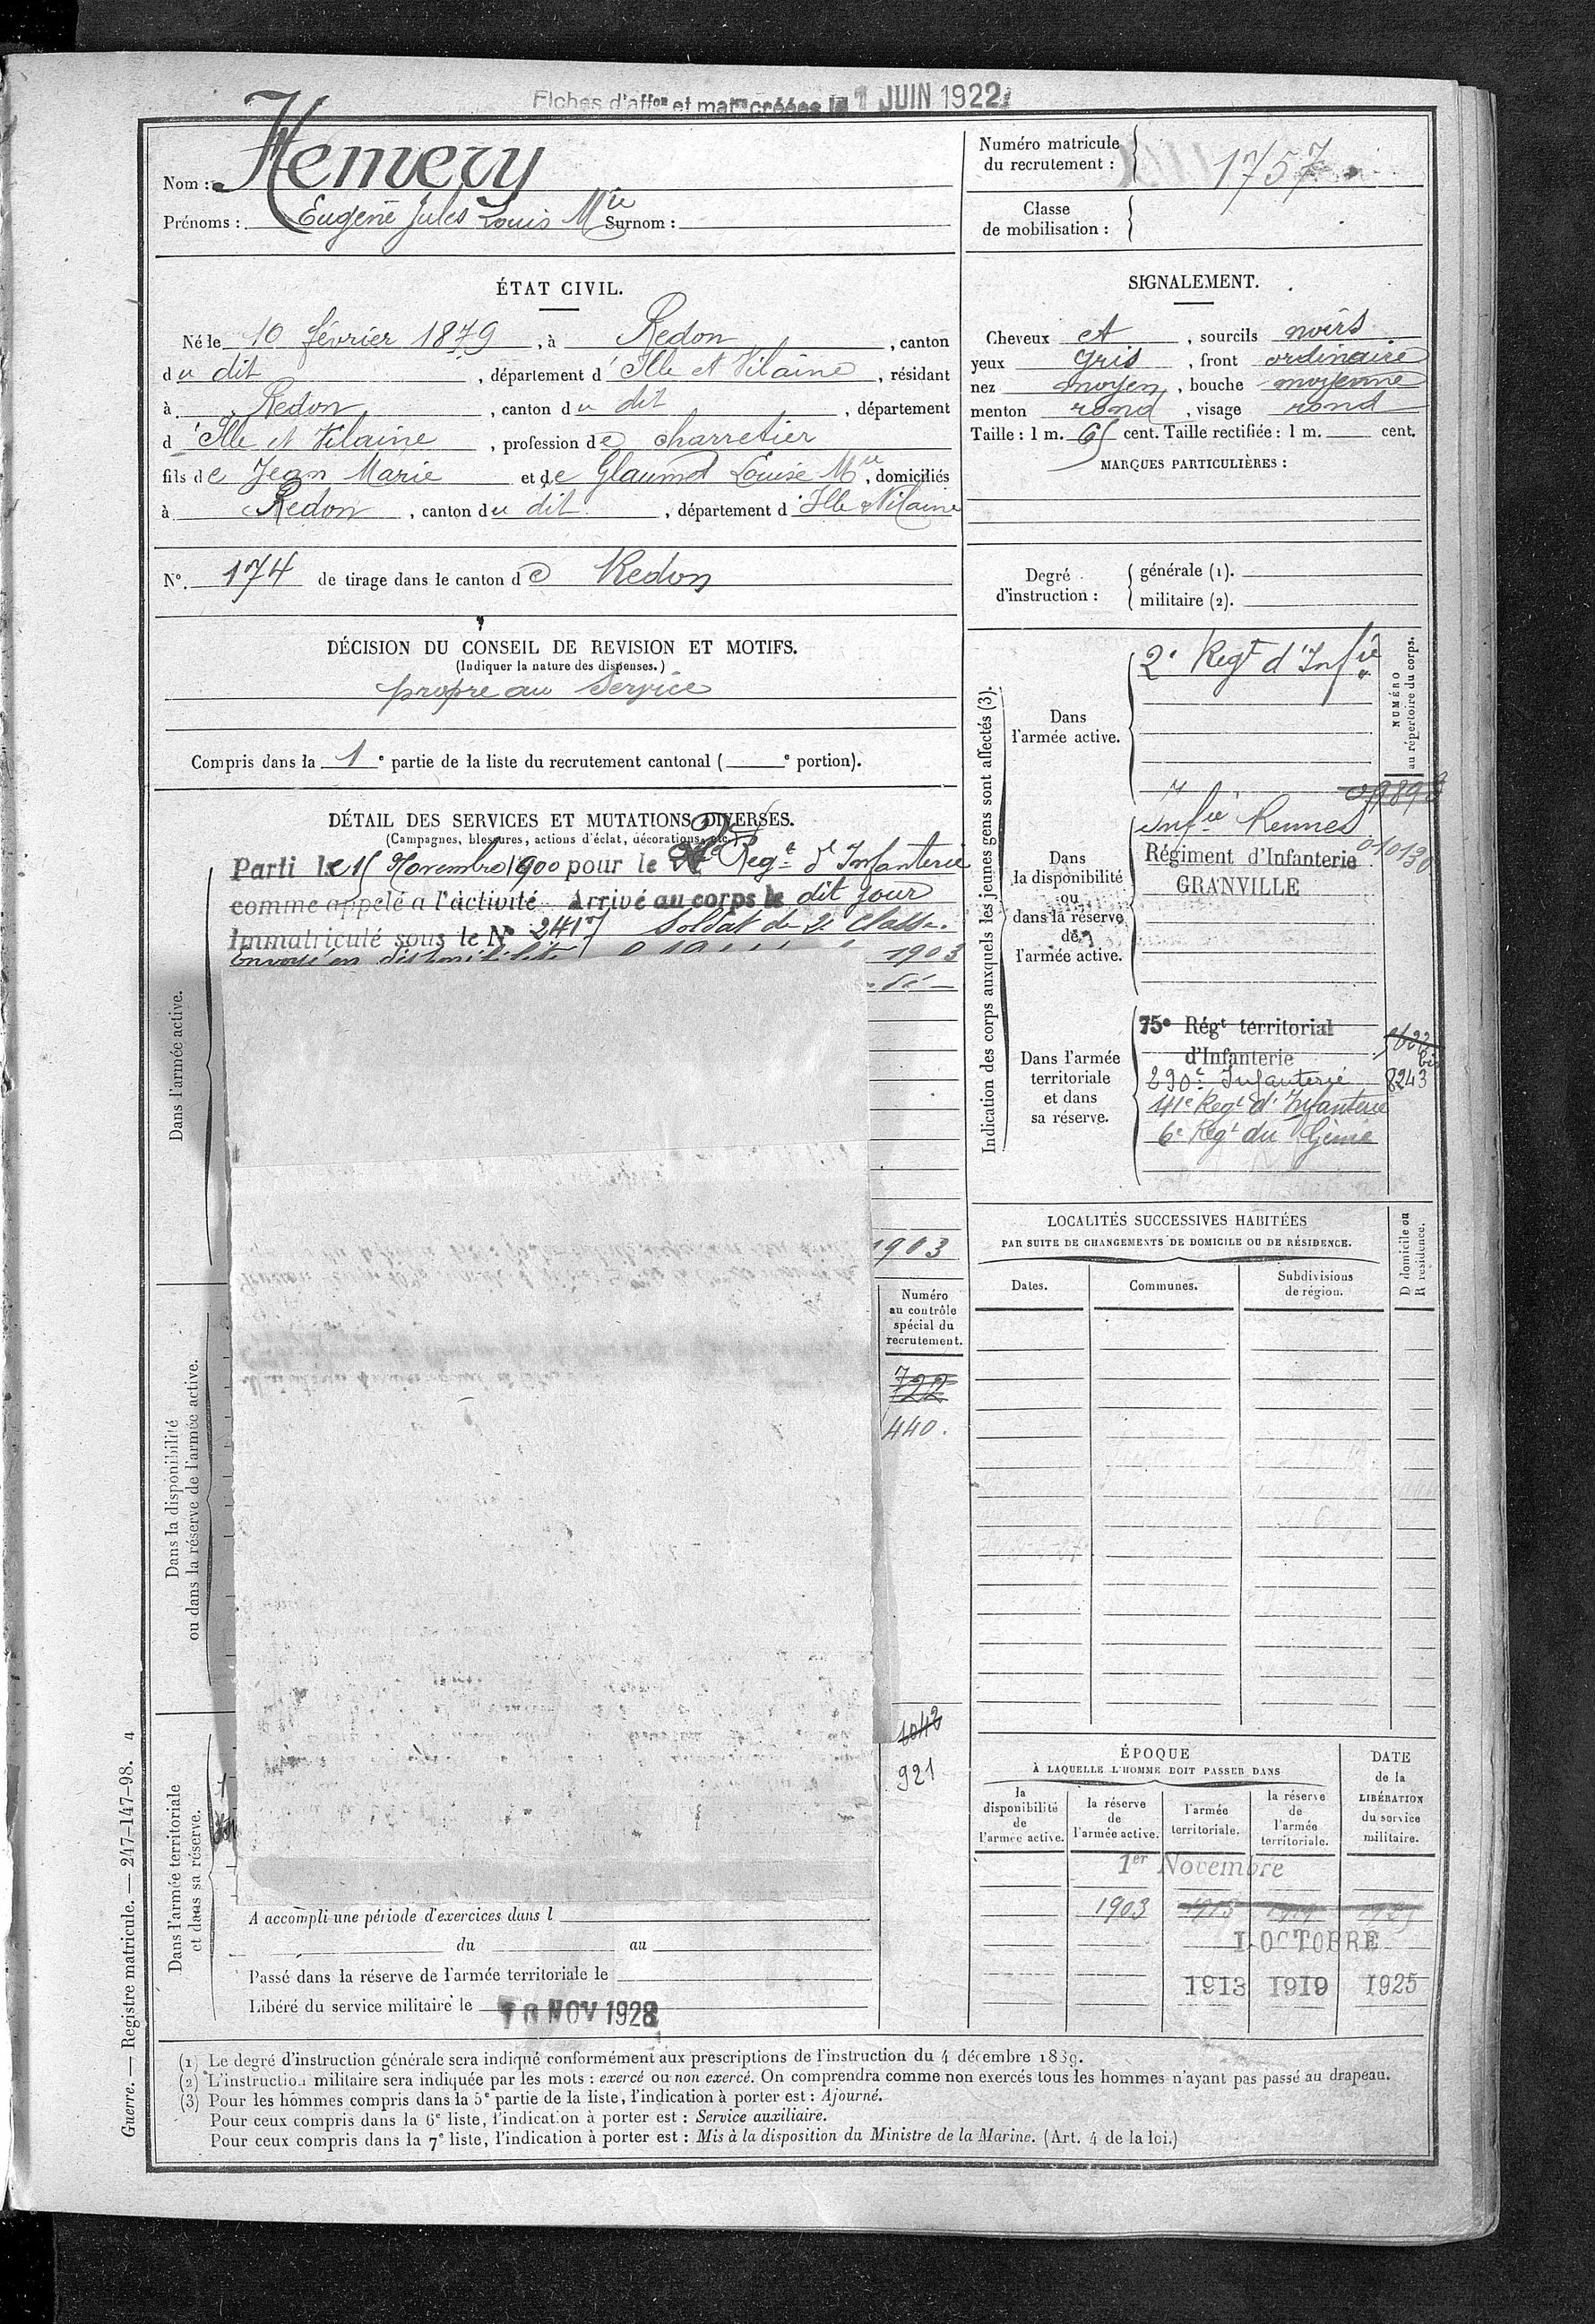 Fiches d'affon et matres créées le 1 JUIN 1922
Nom : Hemery
Prénoms : Eugène Jules Louis Mie Surnom :
Numéro matricule du recrutement : 1757
Classe de mobilisation :
ÉTAT CIVIL.
Né le 10 février 1879, à Redon, canton
du dit, département d'Ille et Vilaine, résidant
à Redon, canton du dit, département
d'Ille et Vilaine, profession de charretier
fils de Jean Marie et de Glaumot Louise Mie, domiciliés
à Redon, canton du dit, département d'Ille & Vilaine
N° 174 de tirage dans le canton de Redon
SIGNALEMENT.
Cheveux et, sourcils noirs
yeux gris, front ordinaire
nez moyen, bouche moyenne
menton rond, visage rond
Taille : 1 m. 65 cent. Taille rectifiée : 1 m. cent.
MARQUES PARTICULIÈRES :
Degré d'instruction : générale (1).
militaire (2).
DÉCISION DU CONSEIL DE REVISION ET MOTIFS.
(Indiquer la nature des dispenses.)
propre au service
Compris dans la 1e partie de la liste du recrutement cantonal (e portion).
DÉTAIL DES SERVICES ET MUTATIONS DIVERSES.
(Campagnes, blessures, actions d'éclat, décorations, etc.)
Parti le 15 Novembre 1900 pour le 2e Regt d'Infanterie
comme appelé à l'activité Arrivé au corps le dit jour
Immatriculé sous le N° 2417 Soldat de 2e classe.
Envoyé en disponibilité 1903
1903
Dans l'armée active.
Dans la disponibilité
ou dans la réserve de l'armée active.
Dans l'armée territoriale
et dans sa réserve.
Numéro
au contrôle
spécial du
recrutement.
722
440.
1042
921
A accompli une période d'exercices dans l
du au
Passé dans la réserve de l'armée territoriale le
Libéré du service militaire le 10 NOV 1928
Indication des corps auxquels les jeunes gens sont affectés (3).
NUMÉRO
au répertoire du corps.
Dans
l'armée active.
2e Regt d'Infie
Dans
la disponibilité
ou
dans la réserve
de
l'armée active.
Infie Rennes
010130
Régiment d'Infanterie
GRANVILLE
Dans l'armée
territoriale
et dans
sa réserve.
75e Régt territorial
d'Infanterie
290e Infanterie 8243
41e Regt d'Infanterie
6e Regt du Génie
LOCALITÉS SUCCESSIVES HABITÉES
PAR SUITE DE CHANGEMENTS DE DOMICILE OU DE RÉSIDENCE.
D domicile ou
R résidence.
Dates.
Communes.
Subdivisions
de région.
ÉPOQUE
À LAQUELLE L'HOMME DOIT PASSER DANS
la
disponibilité
de
l'armée active.
la réserve
de
l'armée active.
l'armée
territoriale.
la réserve
de
l'armée
territoriale.
DATE
de la
LIBÉRATION
du service
militaire.
1er Novembre
1903 1913 1919
1 OCTOBRE
1913 1919 1925
(1) Le degré d'instruction générale sera indiqué conformément aux prescriptions de l'instruction du 4 décembre 1889.
(2) L'instruction militaire sera indiquée par les mots : exercé ou non exercé. On comprendra comme non exercés tous les hommes n'ayant pas passé au drapeau.
(3) Pour les hommes compris dans la 5e partie de la liste, l'indication à porter est : Ajourné.
Pour ceux compris dans la 6e liste, l'indication à porter est : Service auxiliaire.
Pour ceux compris dans la 7e liste, l'indication à porter est : Mis à la disposition du Ministre de la Marine. (Art. 4 de la loi.)
Guerre. — Registre matricule. — 247-147-98. 4